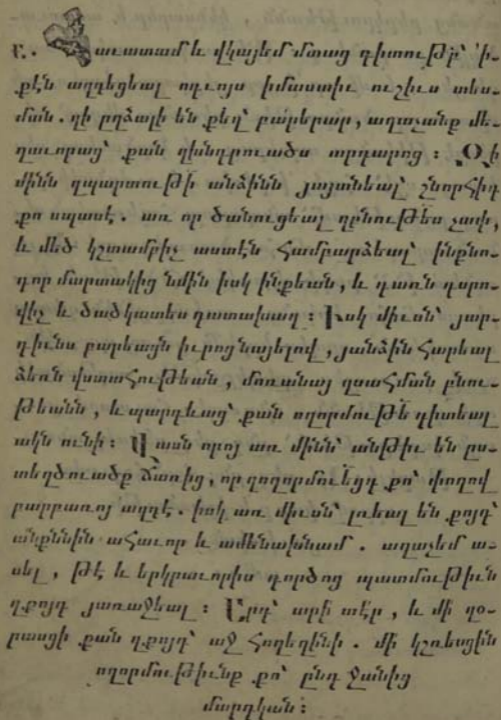 Ը. Հաւատամ և վկայեմ մտաց դիտութեր՝ ՚ի
քէն ազդեցեալ ողւոյս իմաստիւ ուշիւս տես-
ման. զի ըղձալի են քեզ՝ բարերար, աղաչանք մե-
ղաւորաց՝ քան զխնդրուածս արդարոց : Զի
մինն զպարտութի անձինն յայանեալ՝ շնորհիդ
քո սպասէ. առ որ ծանուցեալ զբնութես չափ,
և մեծ կշտամբիչ աստէն համբարձեալ՝ ինքնո-
դոր մարտակից նմին իսկ ինքեան, և դառն դարո-
վիչ և ծածկատես դատախազ : Իսկ միւսն՝ յար-
դիւնս բարեացն իւրոց նայելով, յանձին հարեալ
ձեռն վստահութեան, մոռանայ զսահման բնու-
թեանն, և պարգևաց՝ քան ողորմութե դիտեալ
ակն ունի : Վասն որոյ առ մինն՝ անթիւ են ըս-
տեղծուածք ճառից, որ զողորմուեցդ քո՝ փողով
բարբառոյ ազդէ. իսկ առ միւսն՝ լռեալ են քոյդ՝
անքննին ահաւոր և ամենախնամ. աղաչեմ ա-
սել, թէ և երկրաւորիս գործոց պատմութիւն
զքոյդ յառաջեալ : Արդ՝ արի տէր, և մի զօ-
րասցի քան զքոյդ՝ աջ հողեղինի. մի կշռեսցին
ողորմութիւնք քո՝ ընդ ջանից
մարդկան :